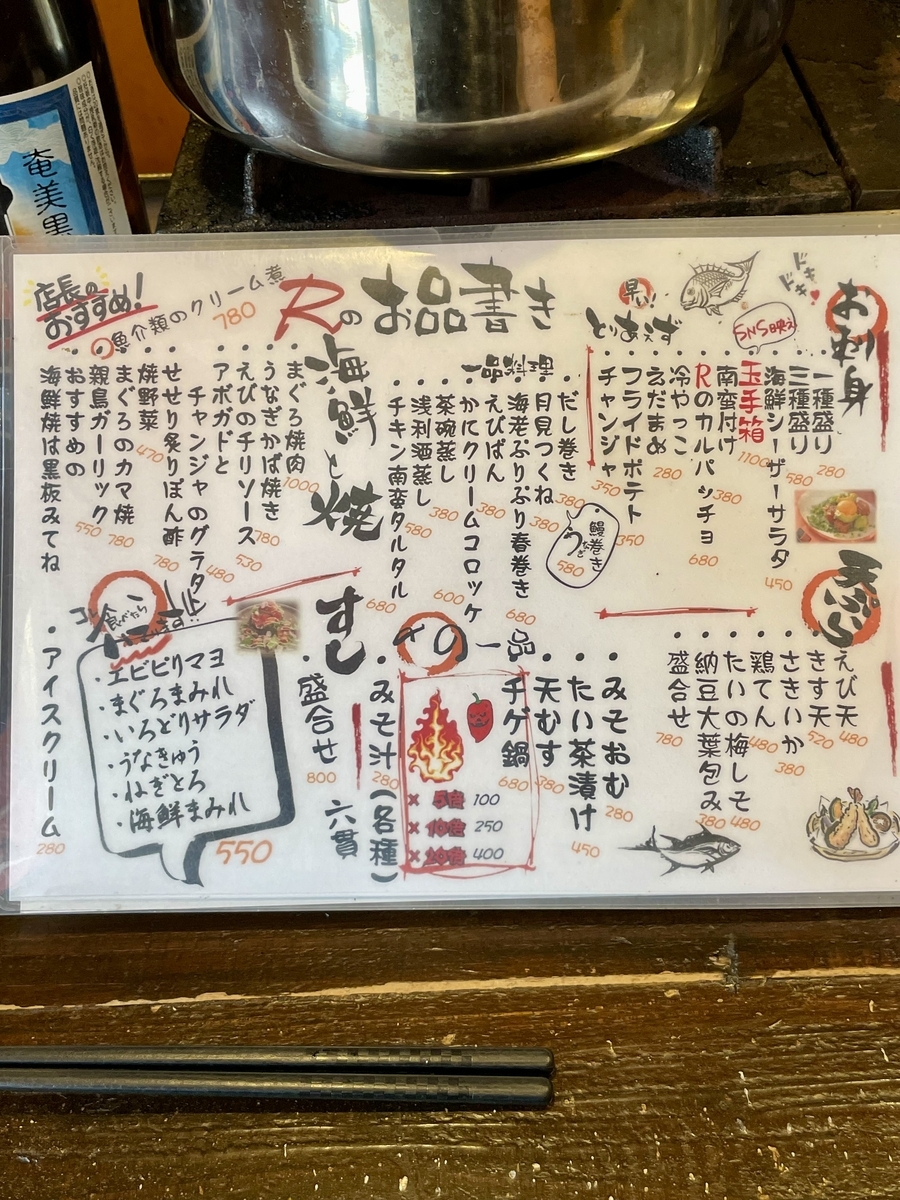 奄美黒
Rのお品書き
店長の
おすすめ!
魚介類のクリーム煮
780
ドキドキ
お刺身
一種盛り
280
三種盛り
580
海鮮シーザーサラダ
450
SNS映え
玉手箱
1100
南蛮付け
380
Rのカルパッチョ
680
早い!
とりあえず
冷やっこ
280
えだまめ
280
フライドポテト
350
チャンジャ
350
一品料理
だし巻き
380
鰻巻き
うなぎ
580
月見つくね
380
海老ぷりぷり春巻き
680
えびぱん
380
かにクリームコロッケ
600
茶碗蒸し
380
浅利酒蒸し
580
チキン南蛮タルタル
680
海鮮と焼
まぐろ焼肉
1000
うなぎかば焼き
780
えびのチリソース
530
アボガドと
チャンジャのグラタン!!
480
せせり炙りぽん酢
780
焼野菜
470
まぐろのカマ焼
780
親鳥ガーリック
550
おすすめの
海鮮焼は黒板みてね
天ぷら
えび天
480
きす天
520
さきいか
380
鶏てん
480
たいの梅しそ
480
納豆大葉包み
380
盛合せ
780
〆の一品
みそおむ
280
たい茶漬け
450
天むす
380
チゲ鍋
680
× 5倍 100
× 10倍 250
× 20倍 400
みそ汁(各種)
280
すし
盛合せ
六貫
800
・エビピリマヨ
・まぐろまみれ
・いろどりサラダ
・うなきゅう
・ねぎとろ
・海鮮まみれ
550
・アイスクリーム
280